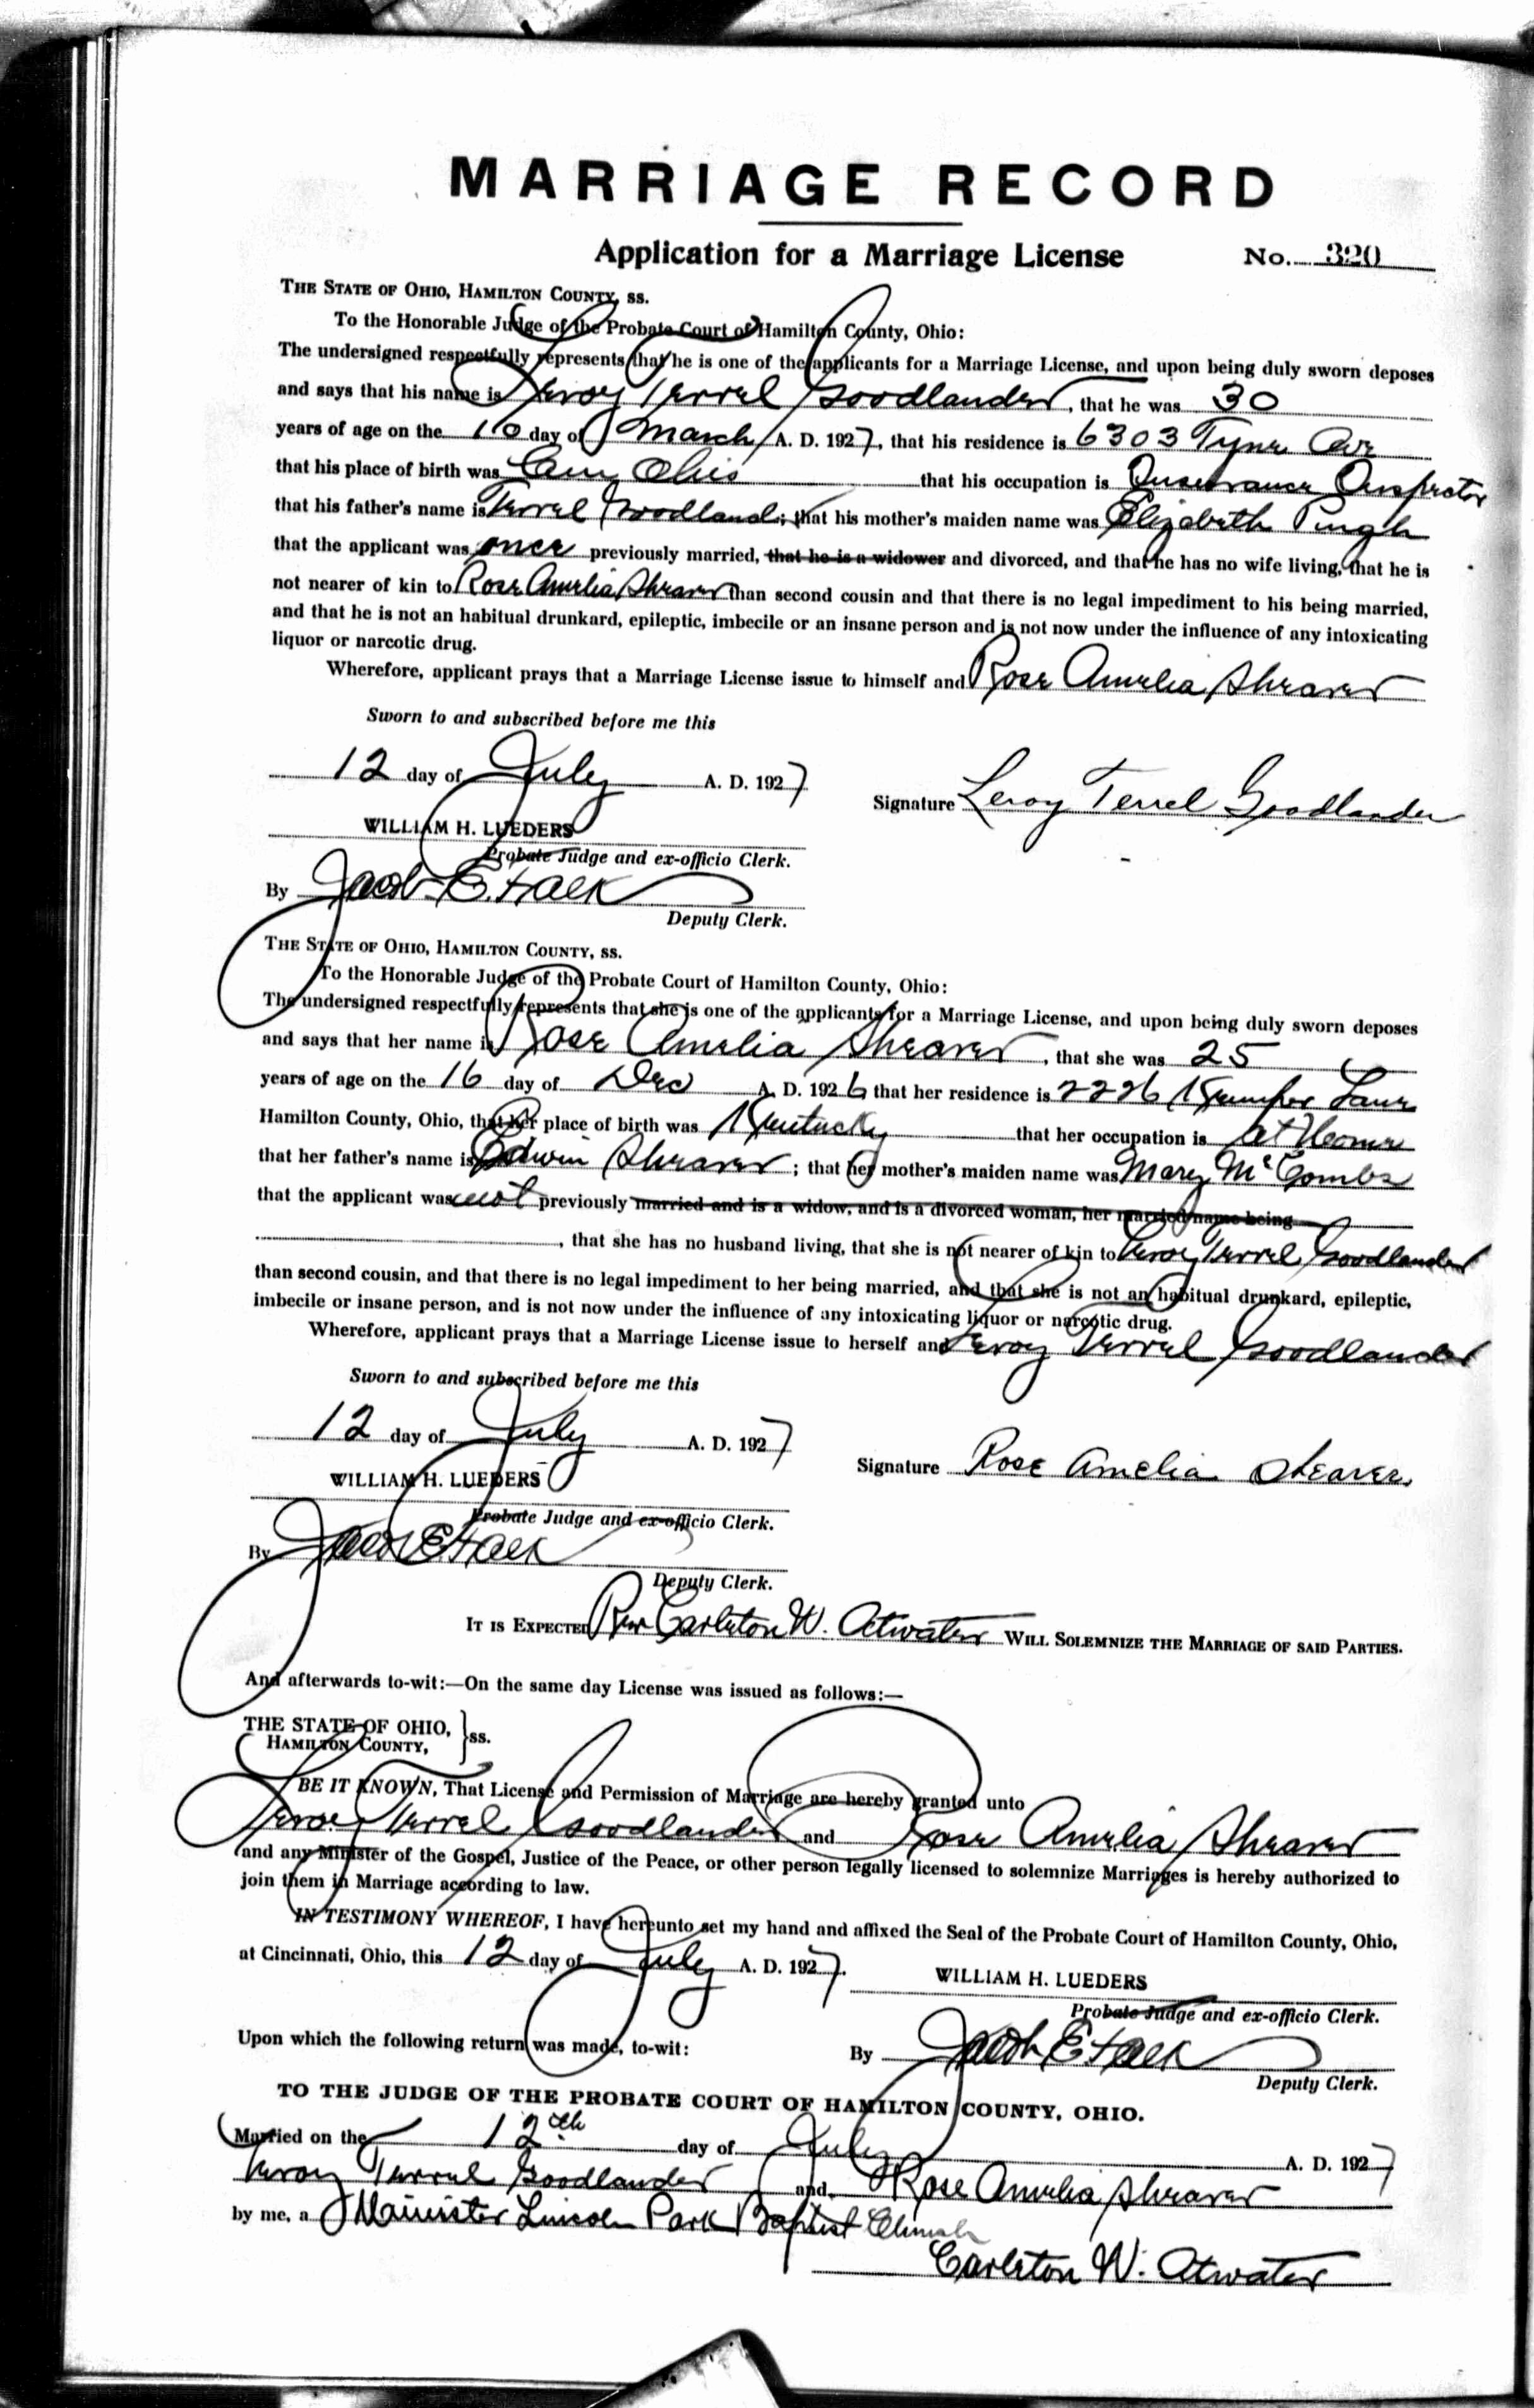 MARRIAGE RECORD
Application for a Marriage License No. 320
THE STATE OF OHIO, HAMILTON COUNTY, SS.
To the Honorable Judge of the Probate Court of Hamilton County, Ohio:
The undersigned respectfully represents that he is one of the applicants for a Marriage License, and upon being duly sworn deposes
and says that his name is Leroy Terrel Goodlander, that he was 30
years of age on the 10 day of March A. D. 1927, that his residence is 6303 Tyne Ave
that his place of birth was Ohio that his occupation is Insurance Inspector
that his father's name is Terrel Goodland; that his mother's maiden name was Elizabeth Pugh
that the applicant was once previously married, that he is a widower and divorced, and that he has no wife living, that he is
not nearer of kin to Rose Amelia Shearer than second cousin and that there is no legal impediment to his being married,
and that he is not an habitual drunkard, epileptic, imbecile or an insane person and is not now under the influence of any intoxicating
liquor or narcotic drug.
Wherefore, applicant prays that a Marriage License issue to himself and Rose Amelia Shearer
Sworn to and subscribed before me this
12 day of July A. D. 1927
Signature Leroy Terrel Goodlander
WILLIAM H. LUEDERS
Probate Judge and ex-officio Clerk.
By Jacob E. Falk
Deputy Clerk.
THE STATE OF OHIO, HAMILTON COUNTY, SS.
To the Honorable Judge of the Probate Court of Hamilton County, Ohio:
The undersigned respectfully represents that she is one of the applicants for a Marriage License, and upon being duly sworn deposes
and says that her name is Rose Amelia Shearer, that she was 25
years of age on the 16 day of Dec A. D. 1926 that her residence is 2226 Kemper Lane
Hamilton County, Ohio, that her place of birth was Kentucky that her occupation is at Home
that her father's name is Edwin Shearer; that her mother's maiden name was Mary McCombs
that the applicant was not previously married and is a widow, and is a divorced woman, her married name being
, that she has no husband living, that she is not nearer of kin to Leroy Terrel Goodlander
than second cousin, and that there is no legal impediment to her being married, and that she is not an habitual drunkard, epileptic,
imbecile or insane person, and is not now under the influence of any intoxicating liquor or narcotic drug.
Wherefore, applicant prays that a Marriage License issue to herself and Leroy Terrel Goodlander
Sworn to and subscribed before me this
12 day of July A. D. 1927
Signature Rose Amelia Shearer.
WILLIAM H. LUEDERS
Probate Judge and ex-officio Clerk.
By Jacob E. Falk
Deputy Clerk.
IT IS EXPECTED Rev Carleton W. Atwater WILL SOLEMNIZE THE MARRIAGE OF SAID PARTIES.
And afterwards to-wit:—On the same day License was issued as follows:—
THE STATE OF OHIO,
HAMILTON COUNTY, } ss.
BE IT KNOWN, That License and Permission of Marriage are hereby granted unto
Leroy Terrel Goodlander and Rose Amelia Shearer
and any Minister of the Gospel, Justice of the Peace, or other person legally licensed to solemnize Marriages is hereby authorized to
join them in Marriage according to law.
IN TESTIMONY WHEREOF, I have hereunto set my hand and affixed the Seal of the Probate Court of Hamilton County, Ohio,
at Cincinnati, Ohio, this 12 day of July A. D. 1927.
WILLIAM H. LUEDERS
Probate Judge and ex-officio Clerk.
Upon which the following return was made, to-wit:
By Jacob E Falk
Deputy Clerk.
TO THE JUDGE OF THE PROBATE COURT OF HAMILTON COUNTY, OHIO.
Married on the 12th day of July A. D. 1927
Leroy Terrel Goodlander and Rose Amelia Shearer
by me, a Minister Lincoln Park Baptist Church
Carleton W. Atwater